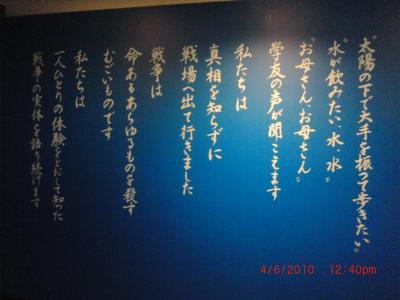 "太陽の下で大手を振って歩きたい"
"水が飲みたい、水、水"
"お母さん、お母さん"
学友の声が聞こえます
私たちは
真相を知らずに
戦場へ出て行きました
戦争は
命あるあらゆるものを殺す
むごいものです
私たちは
一人ひとりの体験をとおして知った
戦争の実体を語り続けます
4/6/2010 12:40pm